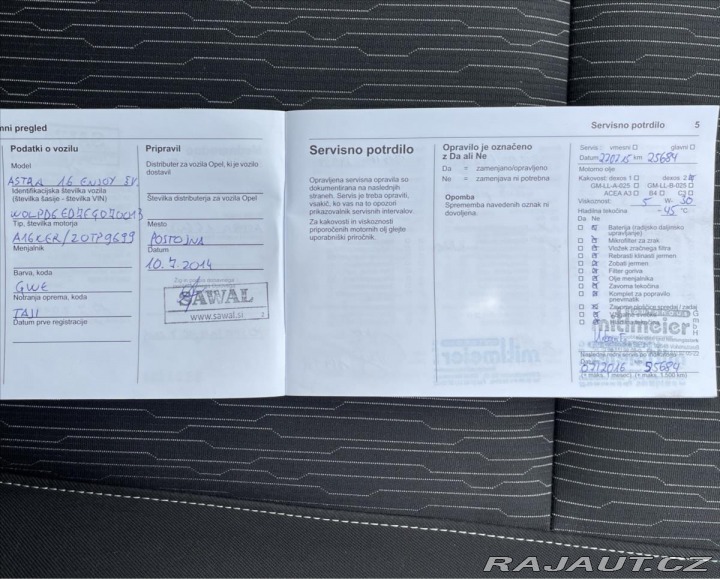 mni pregled
Podatki o vozilu
Model
ASTRA 1.6 ENJOY
Identifikacijska številka vozila
(številka šasije - številka VIN)
Tip, številka motorja
A16XER/20TP9699
Menjalnik
Barva, koda
GWE
Notranja oprema, koda
TAJI
Datum prve registracije
Pripravil
Distributer za vozila Opel, ki je vozilo
dostavil
Številka distributerja za vozila Opel
Mesto
POSTOJNA
Datum
10.7.2014
SAWAL
www.sawal.si
Servisno potrdilo
Opravljena servisna opravila so
dokumentirana na naslednjih
straneh. Servis je treba opraviti,
vsakič, ko vas na to opozori
prikazovalnik servisnih intervalov.
Za kakovosti in viskoznosti
priporočenih motornih olj glejte
uporabniški priročnik.
Opravilo je označeno
z Da ali Ne
Da = zamenjano/opravljeno
Ne = zamenjava ni potrebna
Opomba
Sprememba navedenih oznak ni
dovoljena.
Servisno potrdilo 5
Servis: vmesni glavni
Datum km 25684
Motorno olje
Kakovost: dexos 1 dexos 2
GM-LL-A-025 GM-LL-B-025
ACEA A3 B4 C3
Viskoznost: 5 W- 30
Hladilna tekočina -45 °C
Da Ne
Baterija (radijsko daljinsko
upravljanje)
Mikrofilter za zrak
Vložek zračnega filtra
Rebrasti klinasti jermen
Zobati jermen
Filter goriva
Olje menjalnika
Zavorna tekočina
Komplet za popravilo
pnevmatik
Zavorne ploščice spredaj / zadaj
mitmeier
02/2016 55684
(+ maks. 1 mesec) (+ maks. 1.500 km)
RAJAUT.CZ